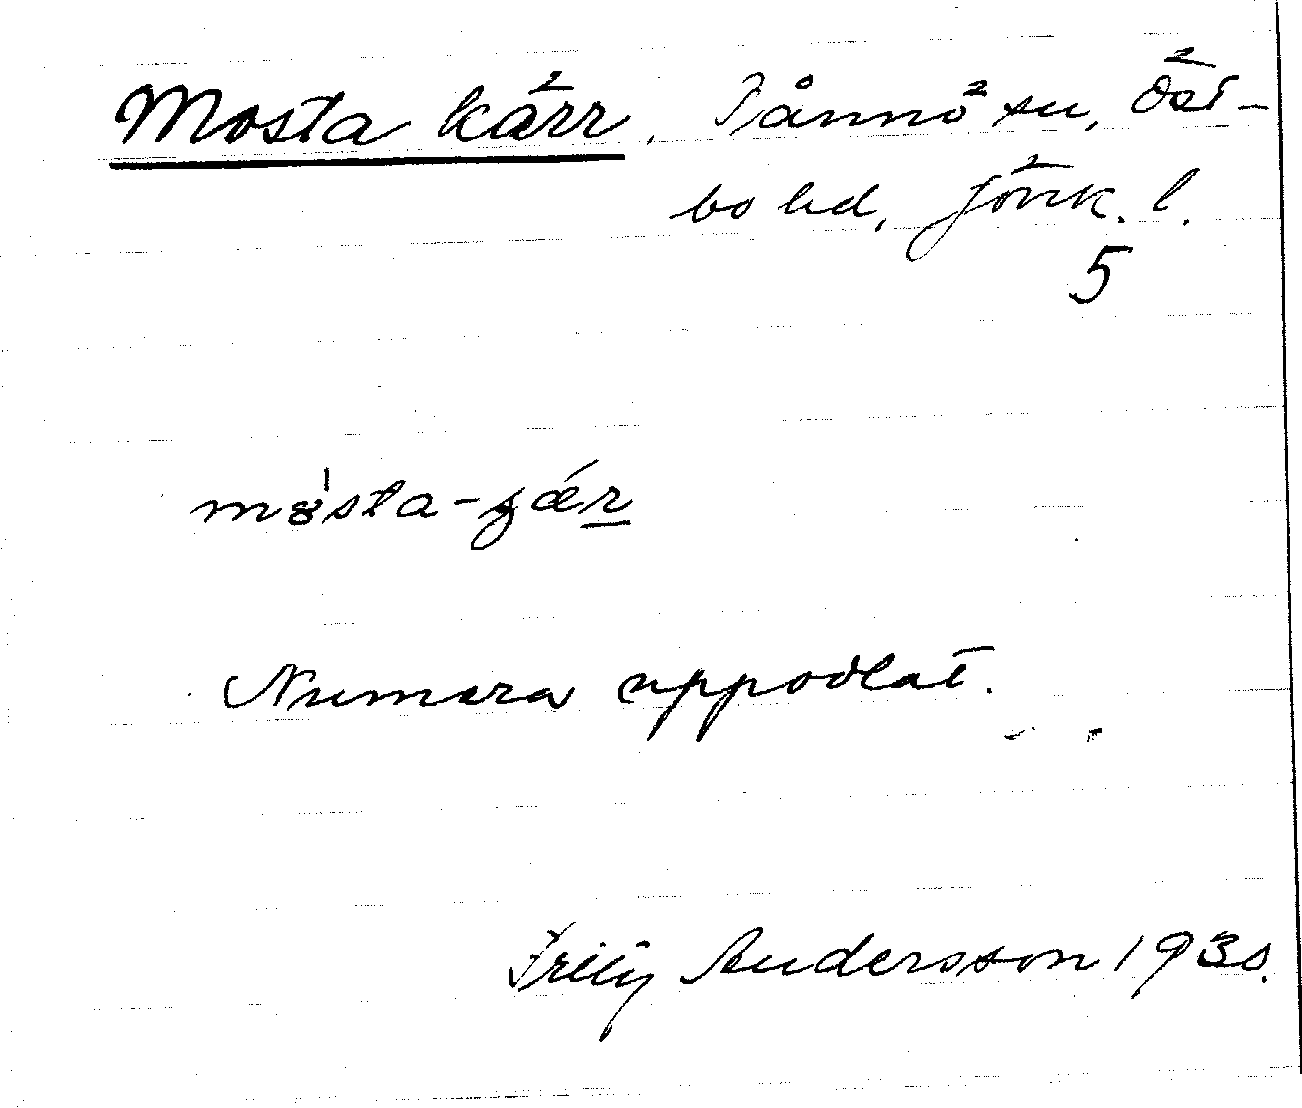 Mosta kärr, Tånnö sn, Öst-
bo hd, Jönk. l.
5
mo̍sta-ɟær
Numera uppodlat.
Fritiof Andersson 1930.